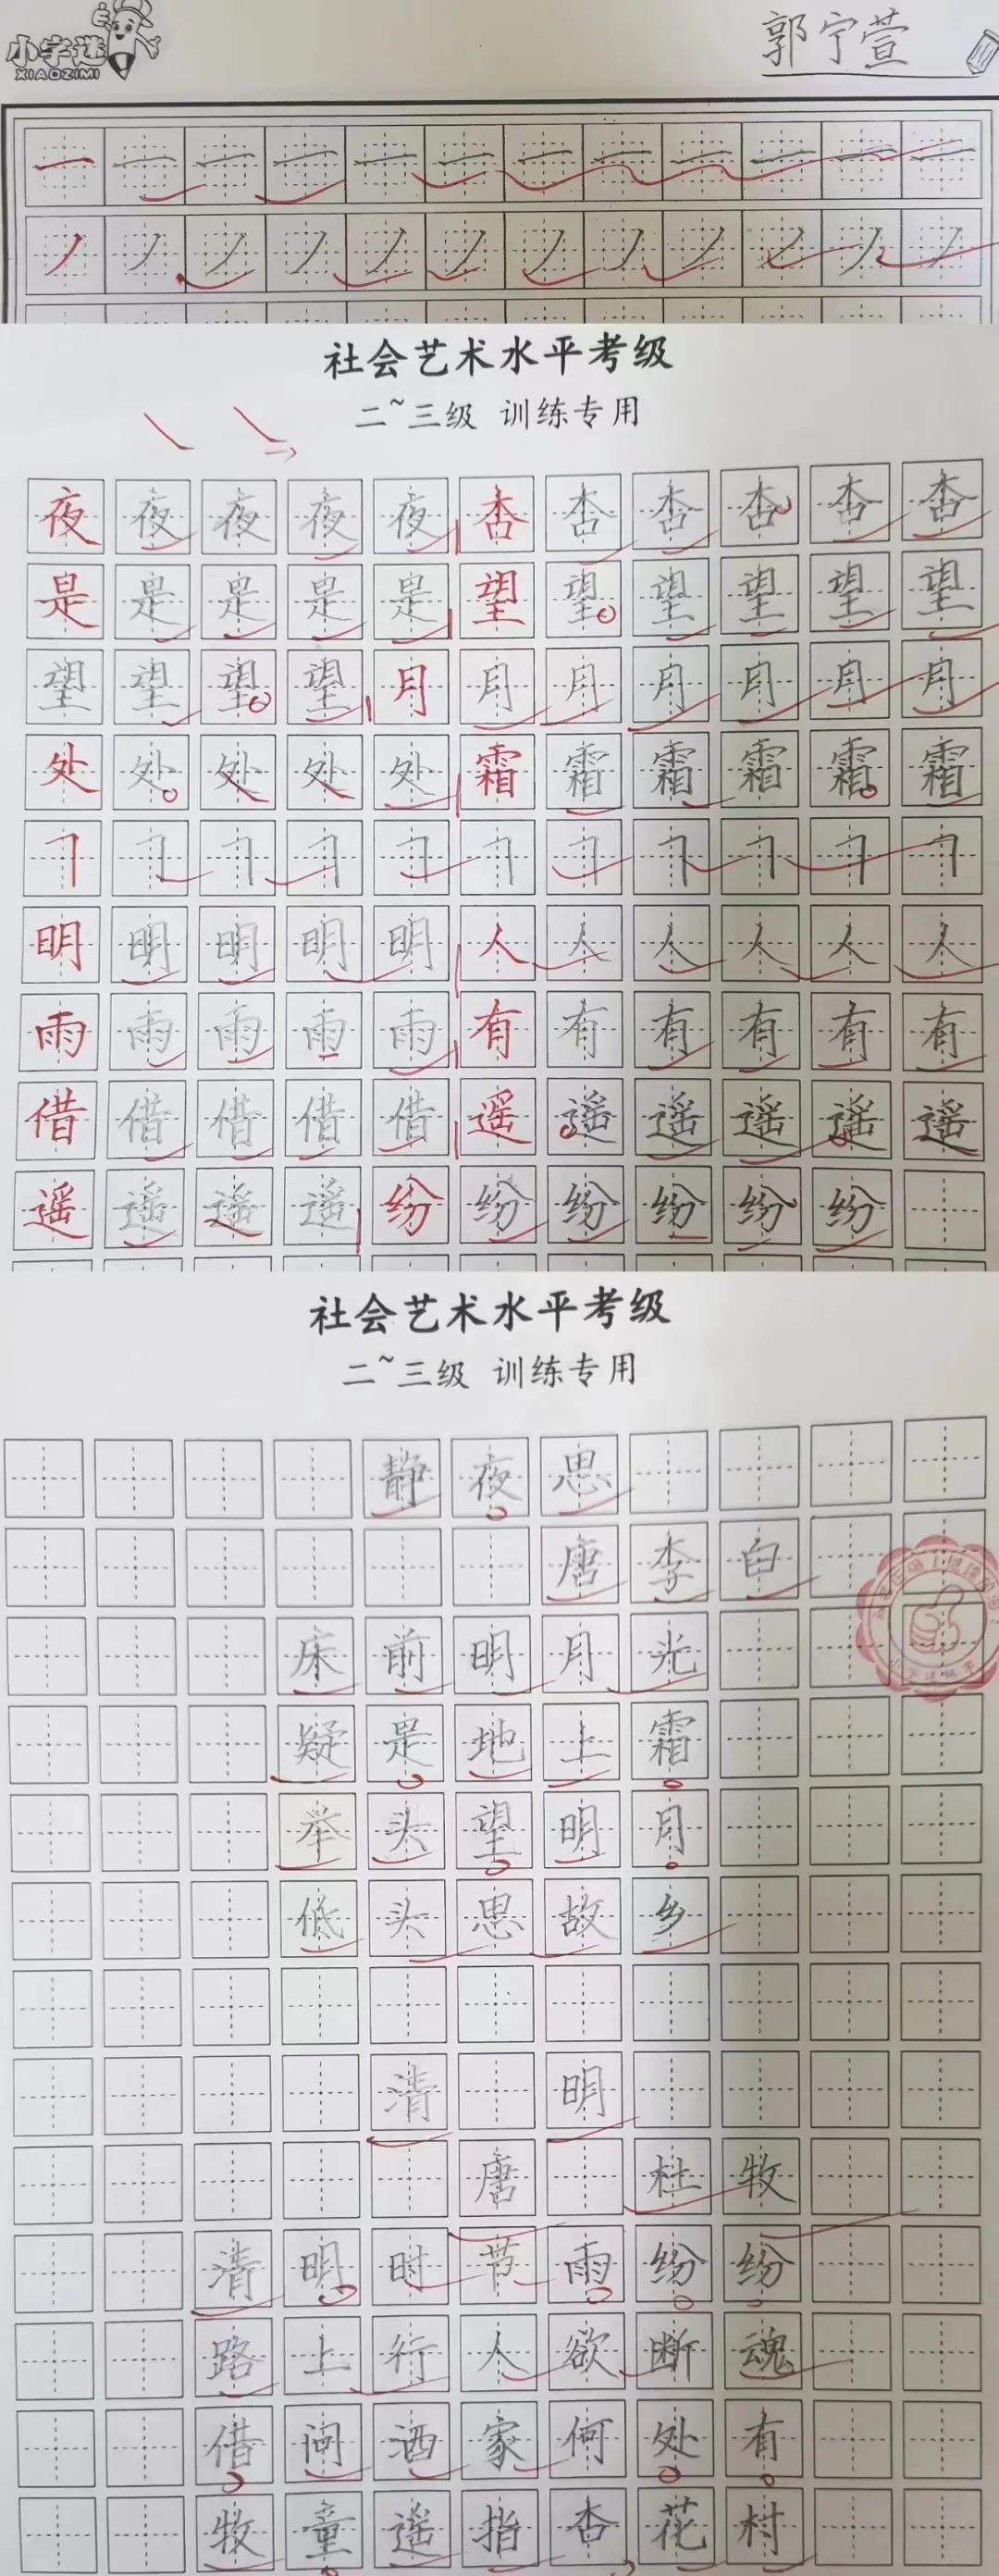 小字迷
XIAOZIMI
郭宁萱
一 一 一 一 一 一 一 一 一 一 一 一
丿 丿 丿 丿 丿 丿 丿 丿 丿 丿 丿 丿
社会艺术水平考级
二~三级 训练专用
夜 夜 夜 夜 夜 杏 杏 杏 杏 杏 杏
是 是 是 是 是 望 望 望 望 望 望
望 望 望 望 月 月 月 月 月 月 月
处 处 处 处 处 霜 霜 霜 霜 霜 霜
㇆ ㇆ ㇆ ㇆ ㇆ ㇆ ㇆ ㇆ ㇆ ㇆ ㇆
明 明 明 明 明 人 人 人 人 人 人
雨 雨 雨 雨 雨 有 有 有 有 有 有
借 借 借 借 借 遥 遥 遥 遥 遥 遥
遥 遥 遥 遥 纷 纷 纷 纷 纷 纷
社会艺术水平考级
二~三级 训练专用
静夜思
唐李白
床前明月光
疑是地上霜
举头望明月
低头思故乡
清 明
唐 杜牧
清明时节雨纷纷
路上行人欲断魂
借问酒家何处有
牧童遥指杏花村